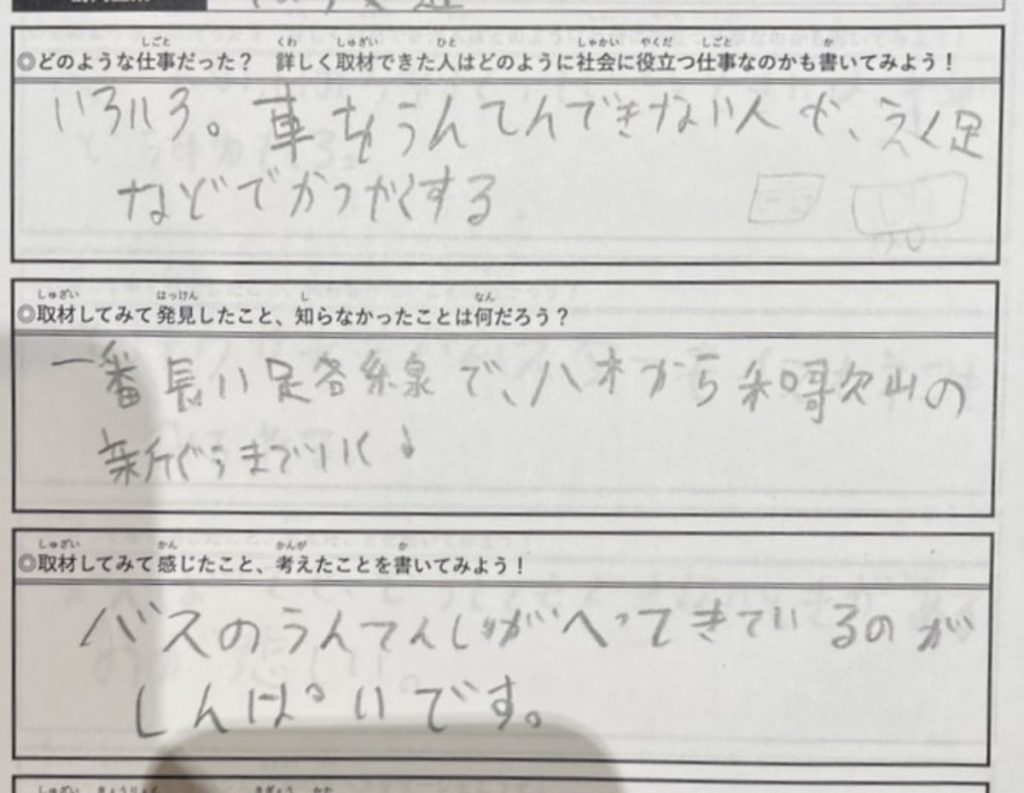 ◎どのような仕事だった？　詳しく取材できた人はどのように社会に役立つ仕事なのかも書いてみよう！
いろいろ。車をうんてんできない人や、えんく足
などでかつやくする
◎取材してみて発見したこと、知らなかったことは何だろう？
一番長い足各糸泉で、八木から和哥欠山の
新ぐうまでいく！
◎取材してみて感じたこと、考えたことを書いてみよう！
バスのうんてんしゅがへってきているのが
しんぱいです。